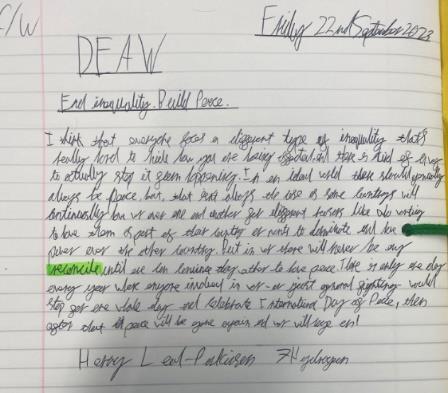 C/W
Friday 22nd September 2023
DEAW
End inequality. Build Peace.
I think that everyone faces a different type of inequality that's
really hard to hide how you are being affected and there is kind of
to actually stop it from happening. In an ideal world there should generally
always be peace but, that isn't always the case as some countries will
continually have war over one and another for different reasons like
to take them as part of their country or wants to dominate and have
power over the other country. But in war there will never be any
reconcile until we can convince they other to have peace. There is only one day
every year where anyone involved in war or just general fighting would
stop for one whole day and celebrate International Day of Peace, then
after that peace will be gone again and war will rage on!
Henry Hydrogen